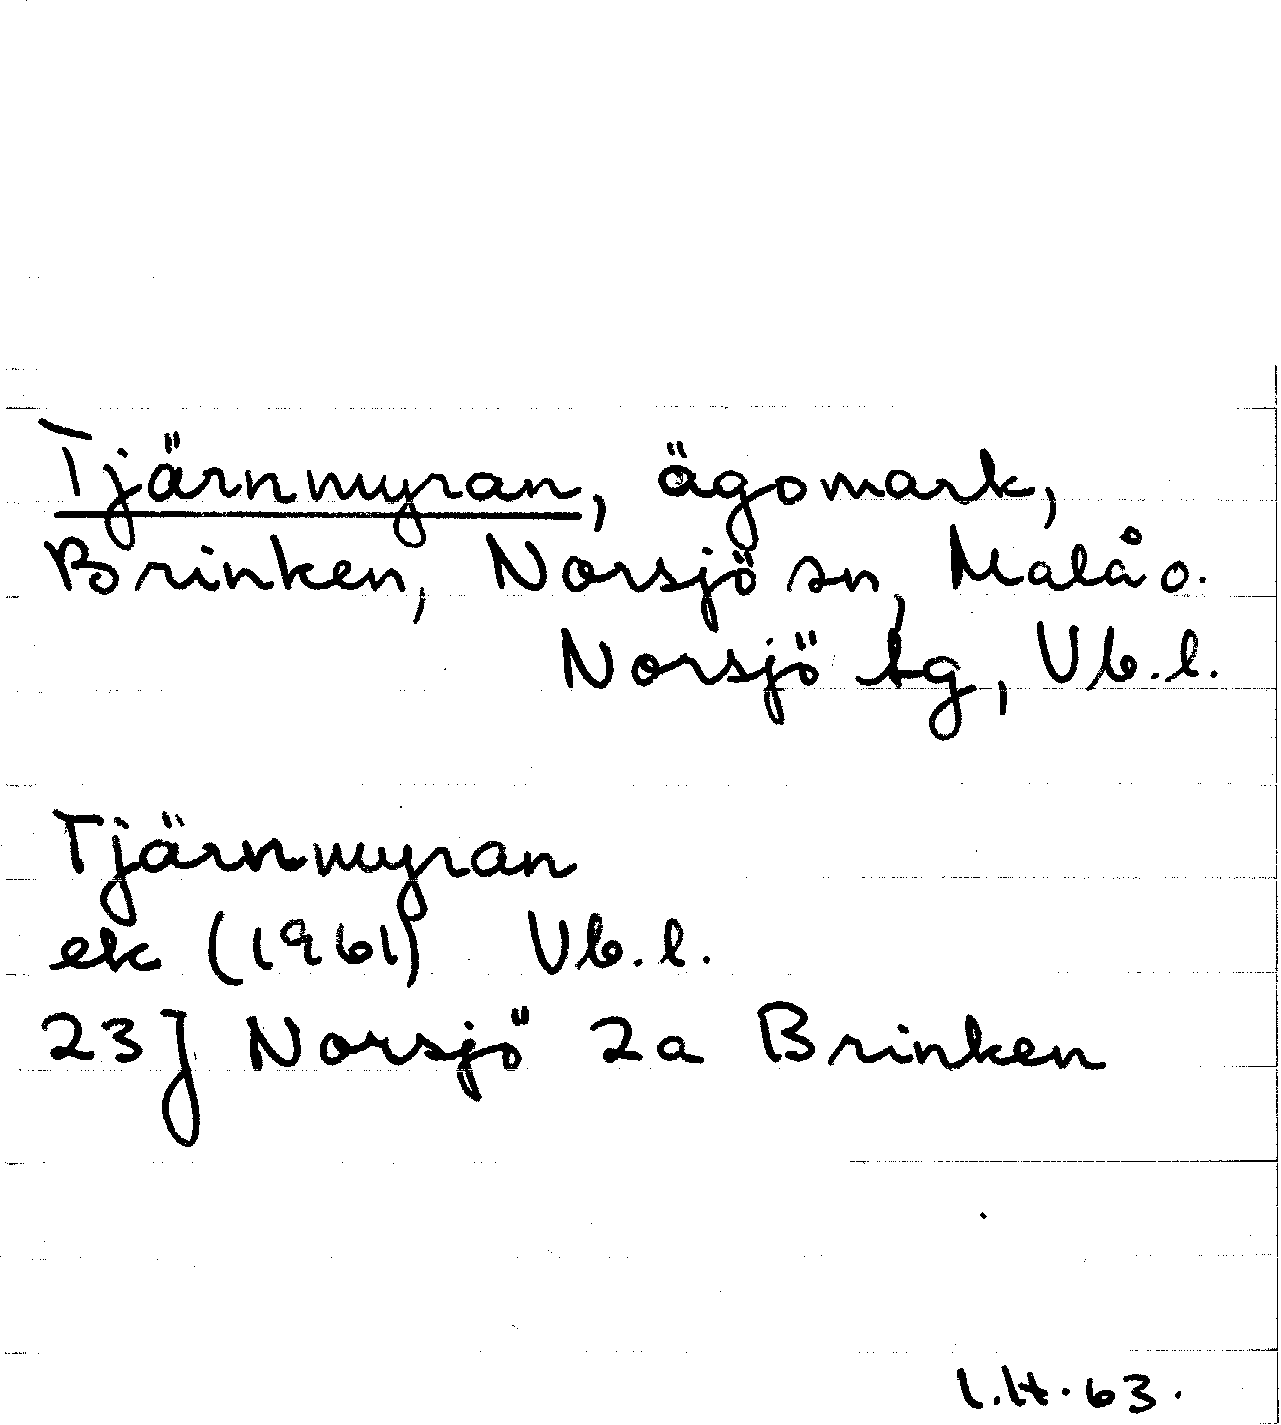 Tjärnmyran, ägomark,
Brinken, Norsjö sn, Malå o.
Norsjö tg, Vb.l.
Tjärnmyran
ek (1961) Vb.l.
23J Norsjö 2a Brinken
I.H. 63.